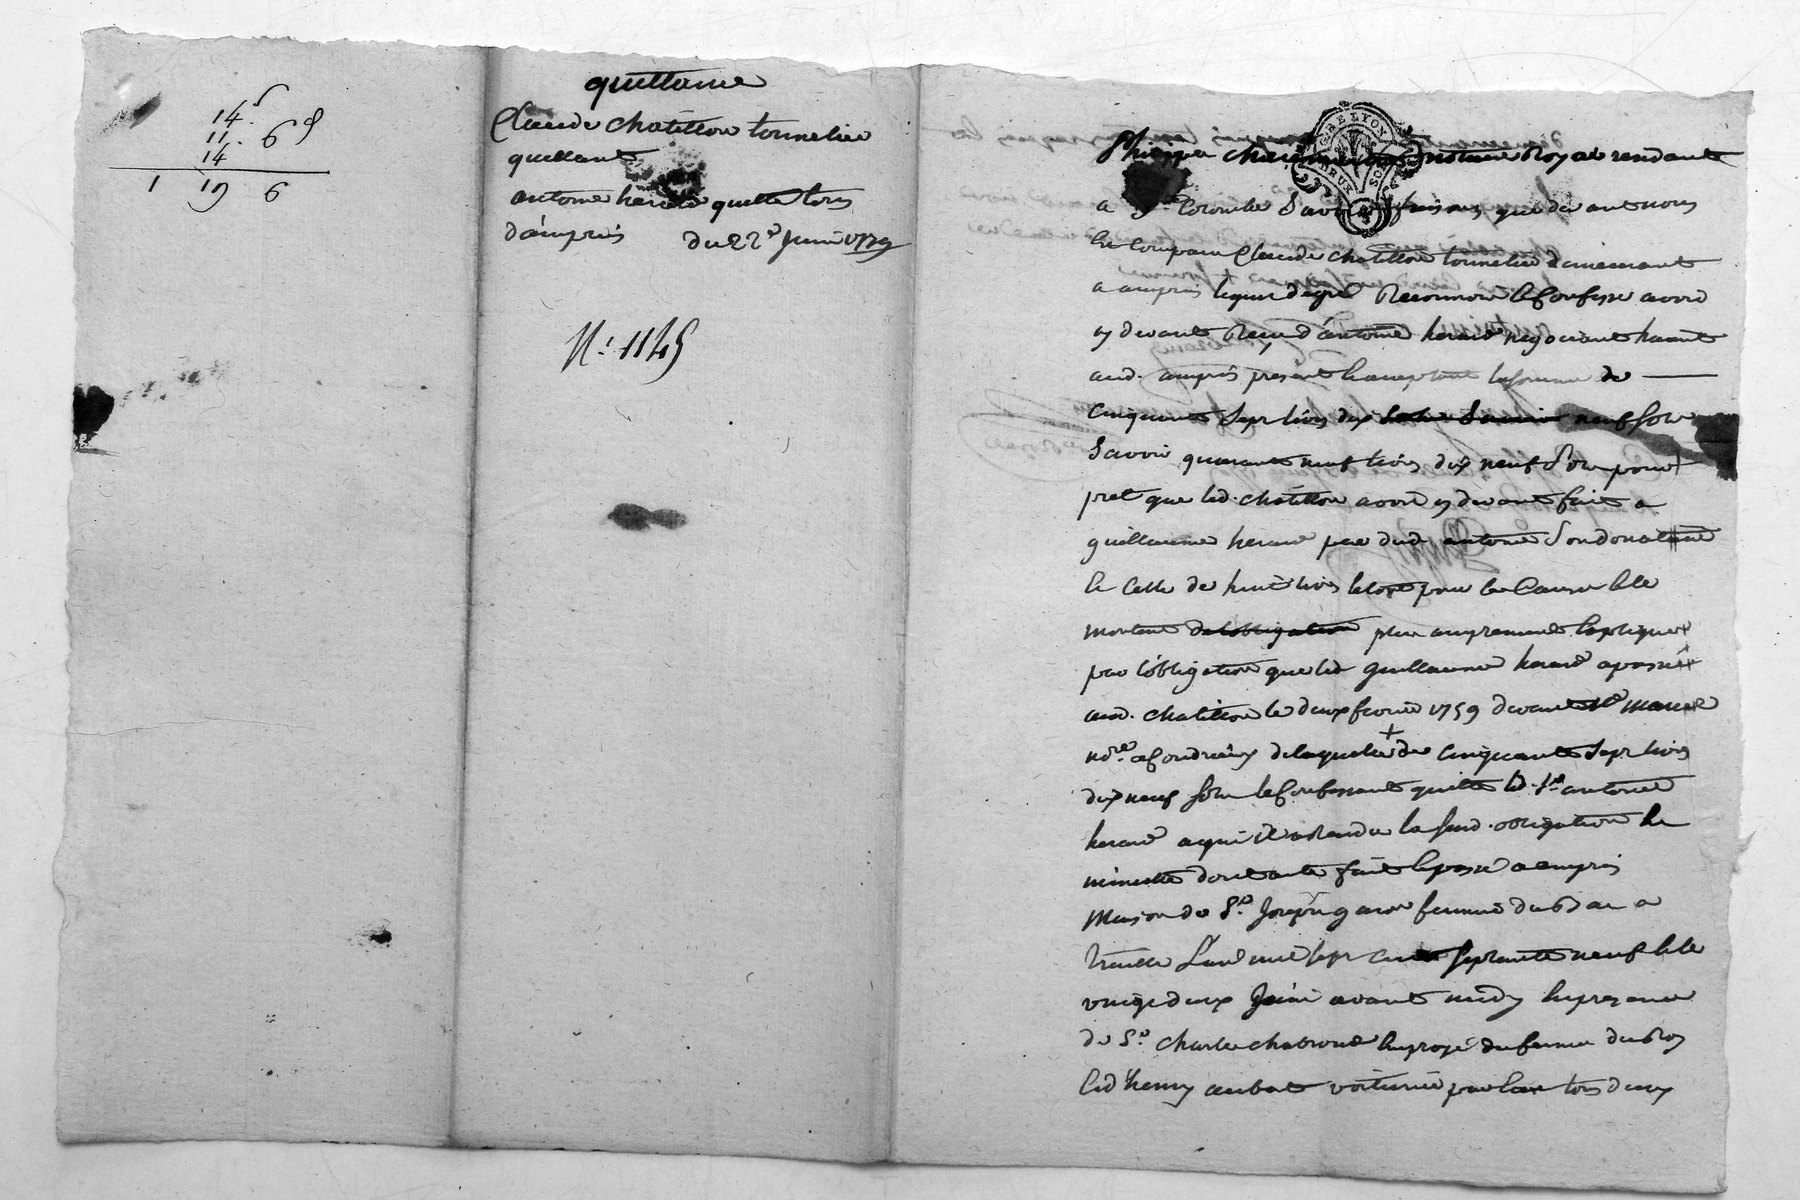 14 s
11. 6 d
14
1 19 6
quittance
Claude chatillon tonnelier
quittant
antoine herard quitte tous
d'ampuis du 22e Juin 1779
N: 1145
GRE LYON
SOLS
notaire Royal rendant
a Ste Colombe Savoir faisons que devant nous
Claude chatillon tonnelier demeurant
a ampuis lequel de gré Reconnoit & Confesse avoir
cy devant Reçu d'antoine herard negociant
aud. ampuis present & acceptant la somme de
cinquante Sept livres dix neuf sols
Savoir quarante neuf livres dix neuf Sols pour
pret que led. chatillon avoit cy devant fait a
guillaume herard pere dud. antoine Son donataire
& Celle de huit livres pour
montant de l'obligation plus amplement Expliqué
par l'obligation que led guillaume herard a passé
aud. chatillon le deux fevrier 1759 devant Me
nore a Condrieux de laquelle de cinquante Sept livres
dix neuf sols le Confessant quitte led. sr antoine
herard a qui il a Rendu la susd. obligation En
minutte dont acte fait & passé a ampuis
Maison de Sr Joseph garon fermier du bac a
Vienne L'an mil sept cent septante neuf & le
vingt deux Juin avant midy En presence
de Sr Charles Employé des fermes du Roy
& d'henry voiturier par Eau tous deux